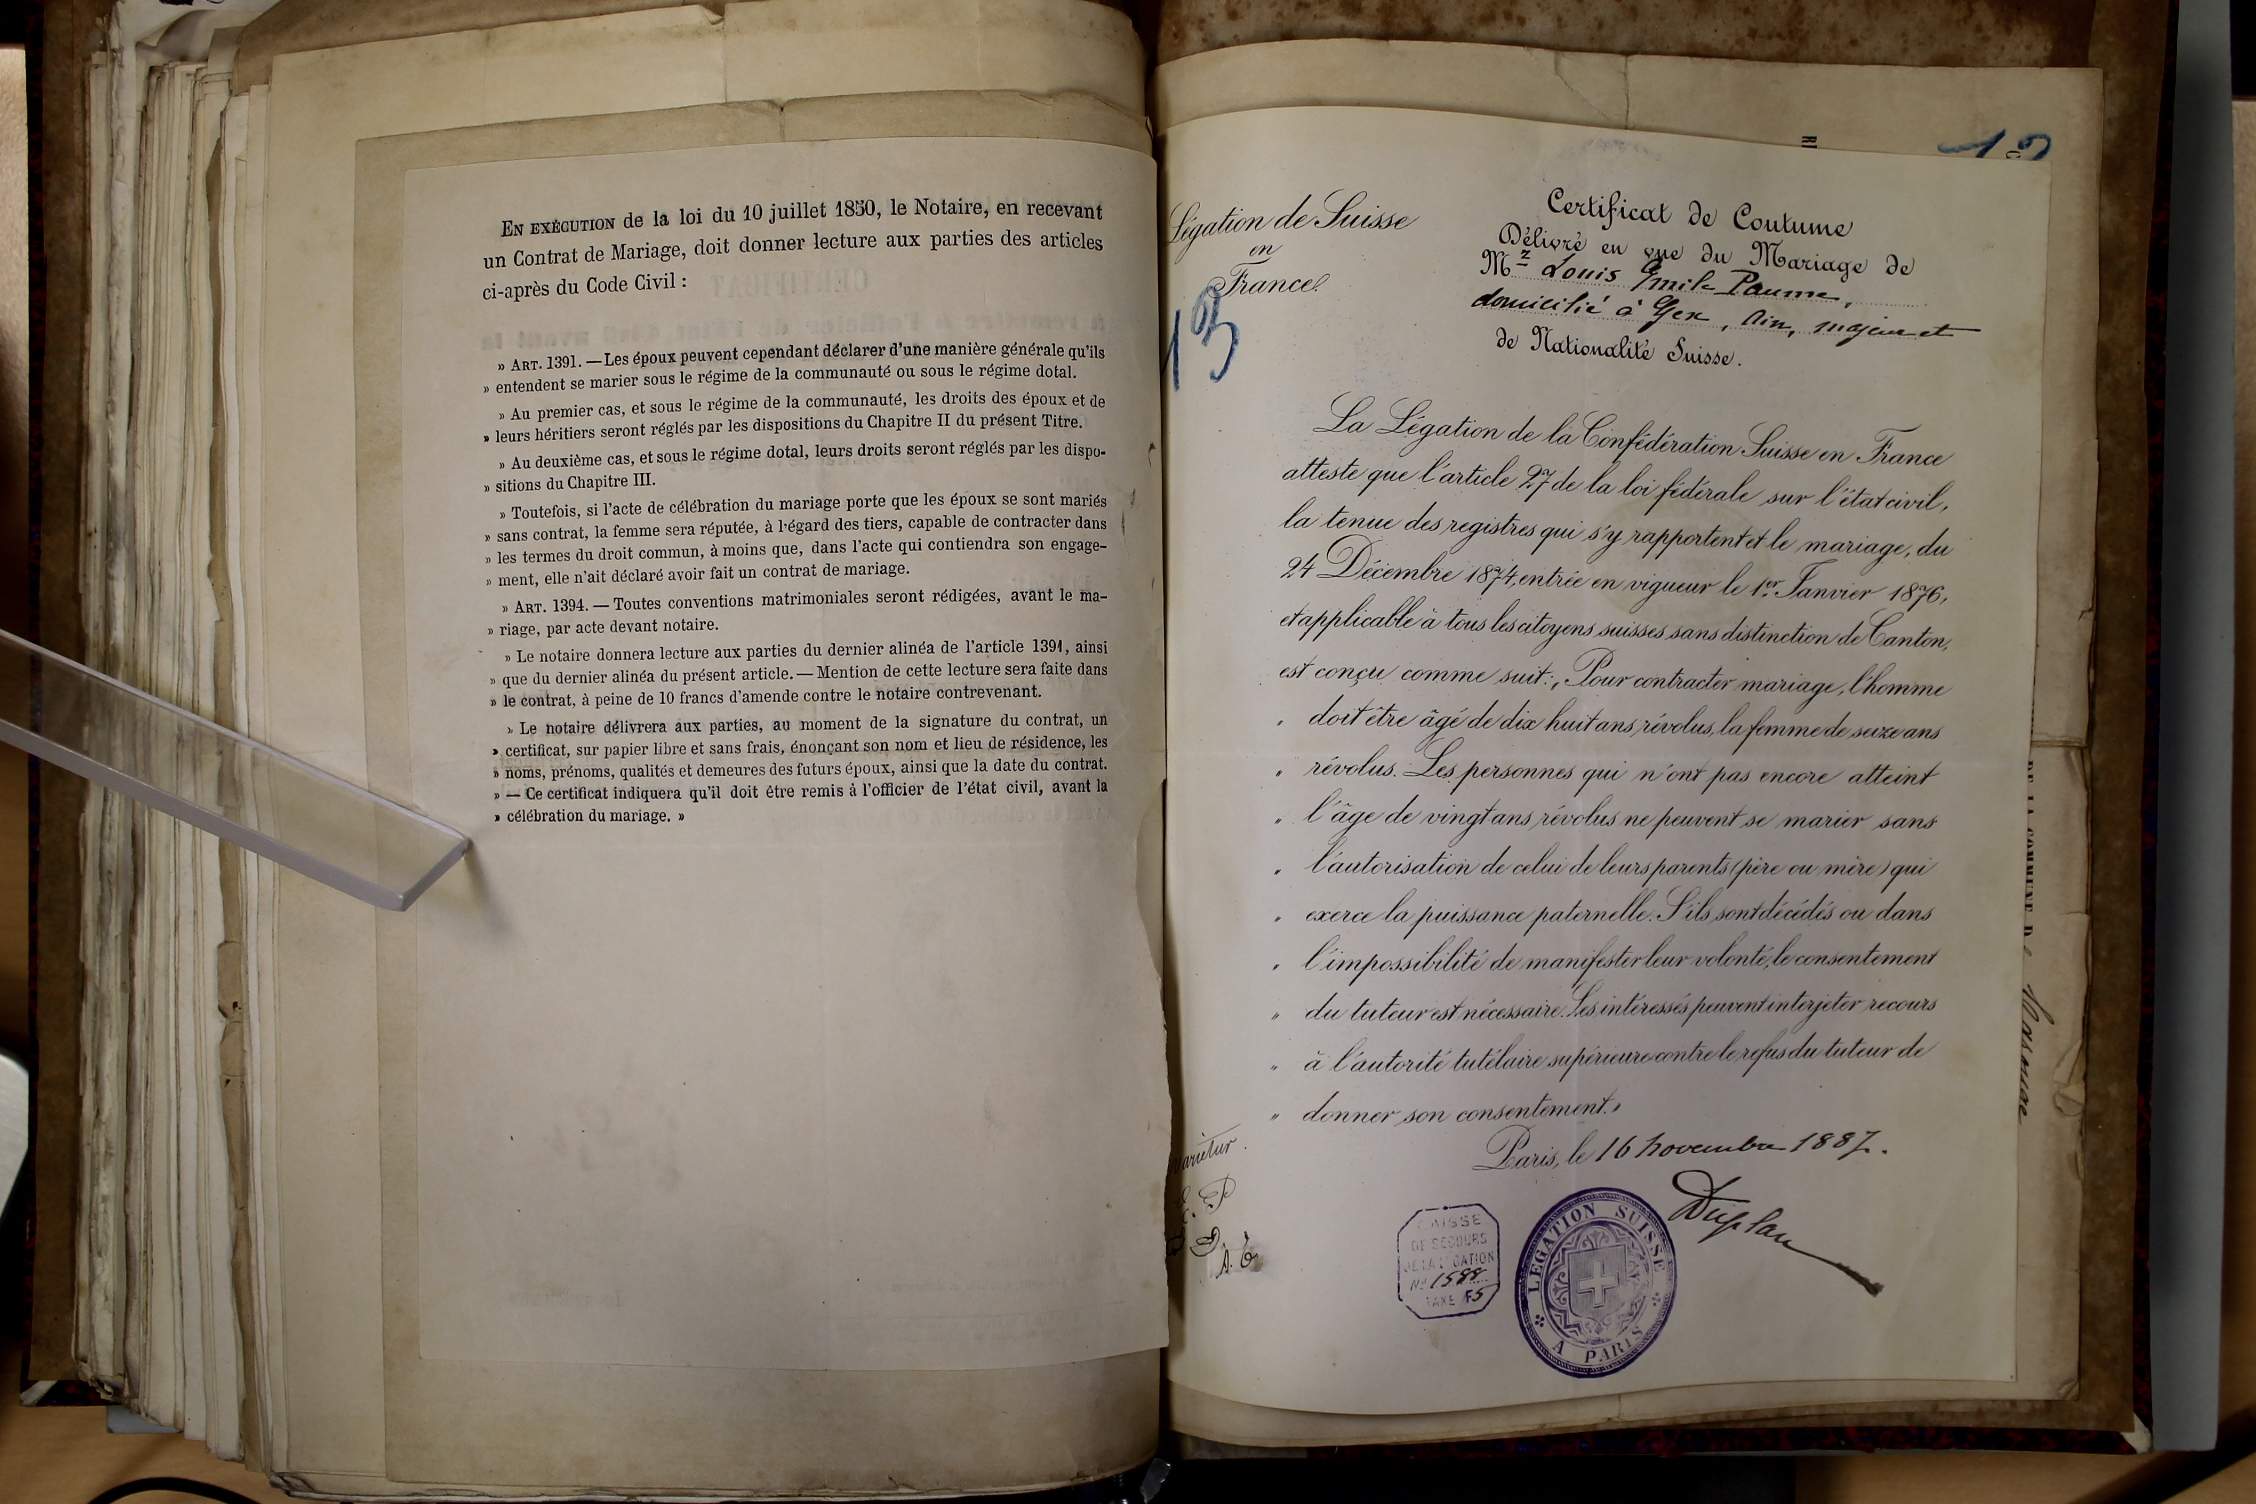 EN EXÉCUTION de la loi du 10 juillet 1850, le Notaire, en recevant
un Contrat de Mariage, doit donner lecture aux parties des articles
ci-après du Code Civil :
» ART. 1391. — Les époux peuvent cependant déclarer d'une manière générale qu'ils
» entendent se marier sous le régime de la communauté ou sous le régime dotal.
» Au premier cas, et sous le régime de la communauté, les droits des époux et de
» leurs héritiers seront réglés par les dispositions du Chapitre II du présent Titre.
» Au deuxième cas, et sous le régime dotal, leurs droits seront réglés par les dispo-
» sitions du Chapitre III.
» Toutefois, si l'acte de célébration du mariage porte que les époux se sont mariés
» sans contrat, la femme sera réputée, à l'égard des tiers, capable de contracter dans
» les termes du droit commun, à moins que, dans l'acte qui contiendra son engage-
» ment, elle n'ait déclaré avoir fait un contrat de mariage.
» ART. 1394. — Toutes conventions matrimoniales seront rédigées, avant le ma-
» riage, par acte devant notaire.
» Le notaire donnera lecture aux parties du dernier alinéa de l'article 1391, ainsi
» que du dernier alinéa du présent article. — Mention de cette lecture sera faite dans
» le contrat, à peine de 10 francs d'amende contre le notaire contrevenant.
» Le notaire délivrera aux parties, au moment de la signature du contrat, un
» certificat, sur papier libre et sans frais, énonçant son nom et lieu de résidence, les
» noms, prénoms, qualités et demeures des futurs époux, ainsi que la date du contrat.
» — Ce certificat indiquera qu'il doit être remis à l'officier de l'état civil, avant la
» célébration du mariage. »
Légation de Suisse
en
France.
13
Certificat de Coutume
Délivré en vue du Mariage de
Mr Louis Emile Paume,
domicilié à Gex, Ain, majeur et
de Nationalité Suisse.
La Légation de la Confédération Suisse en France
atteste que l'article 27 de la loi fédérale sur l'état civil,
la tenue des registres qui s'y rapportent et le mariage, du
24 Décembre 1874, entrée en vigueur le 1er Janvier 1876,
et applicable à tous les citoyens suisses sans distinction de Canton,
est conçu comme suit: „Pour contracter mariage, l'homme
„ doit être âgé de dix huit ans révolus, la femme de seize ans
„ révolus. Les personnes qui n'ont pas encore atteint
„ l'âge de vingt ans révolus ne peuvent se marier sans
„ l'autorisation de celui de leurs parents (père ou mère) qui
„ exerce la puissance paternelle. S'ils sont décédés ou dans
„ l'impossibilité de manifester leur volonté, le consentement
„ du tuteur est nécessaire. Les intéressés peuvent interjeter recours
„ à l'autorité tutélaire supérieure contre le refus du tuteur de
„ donner son consentement."
Paris, le 16 novembre 1887.
Duplan
CAISSE
DE SECOURS
DE LA LÉGATION
No 1588
TAXE F5
LÉGATION SUISSE
A PARIS